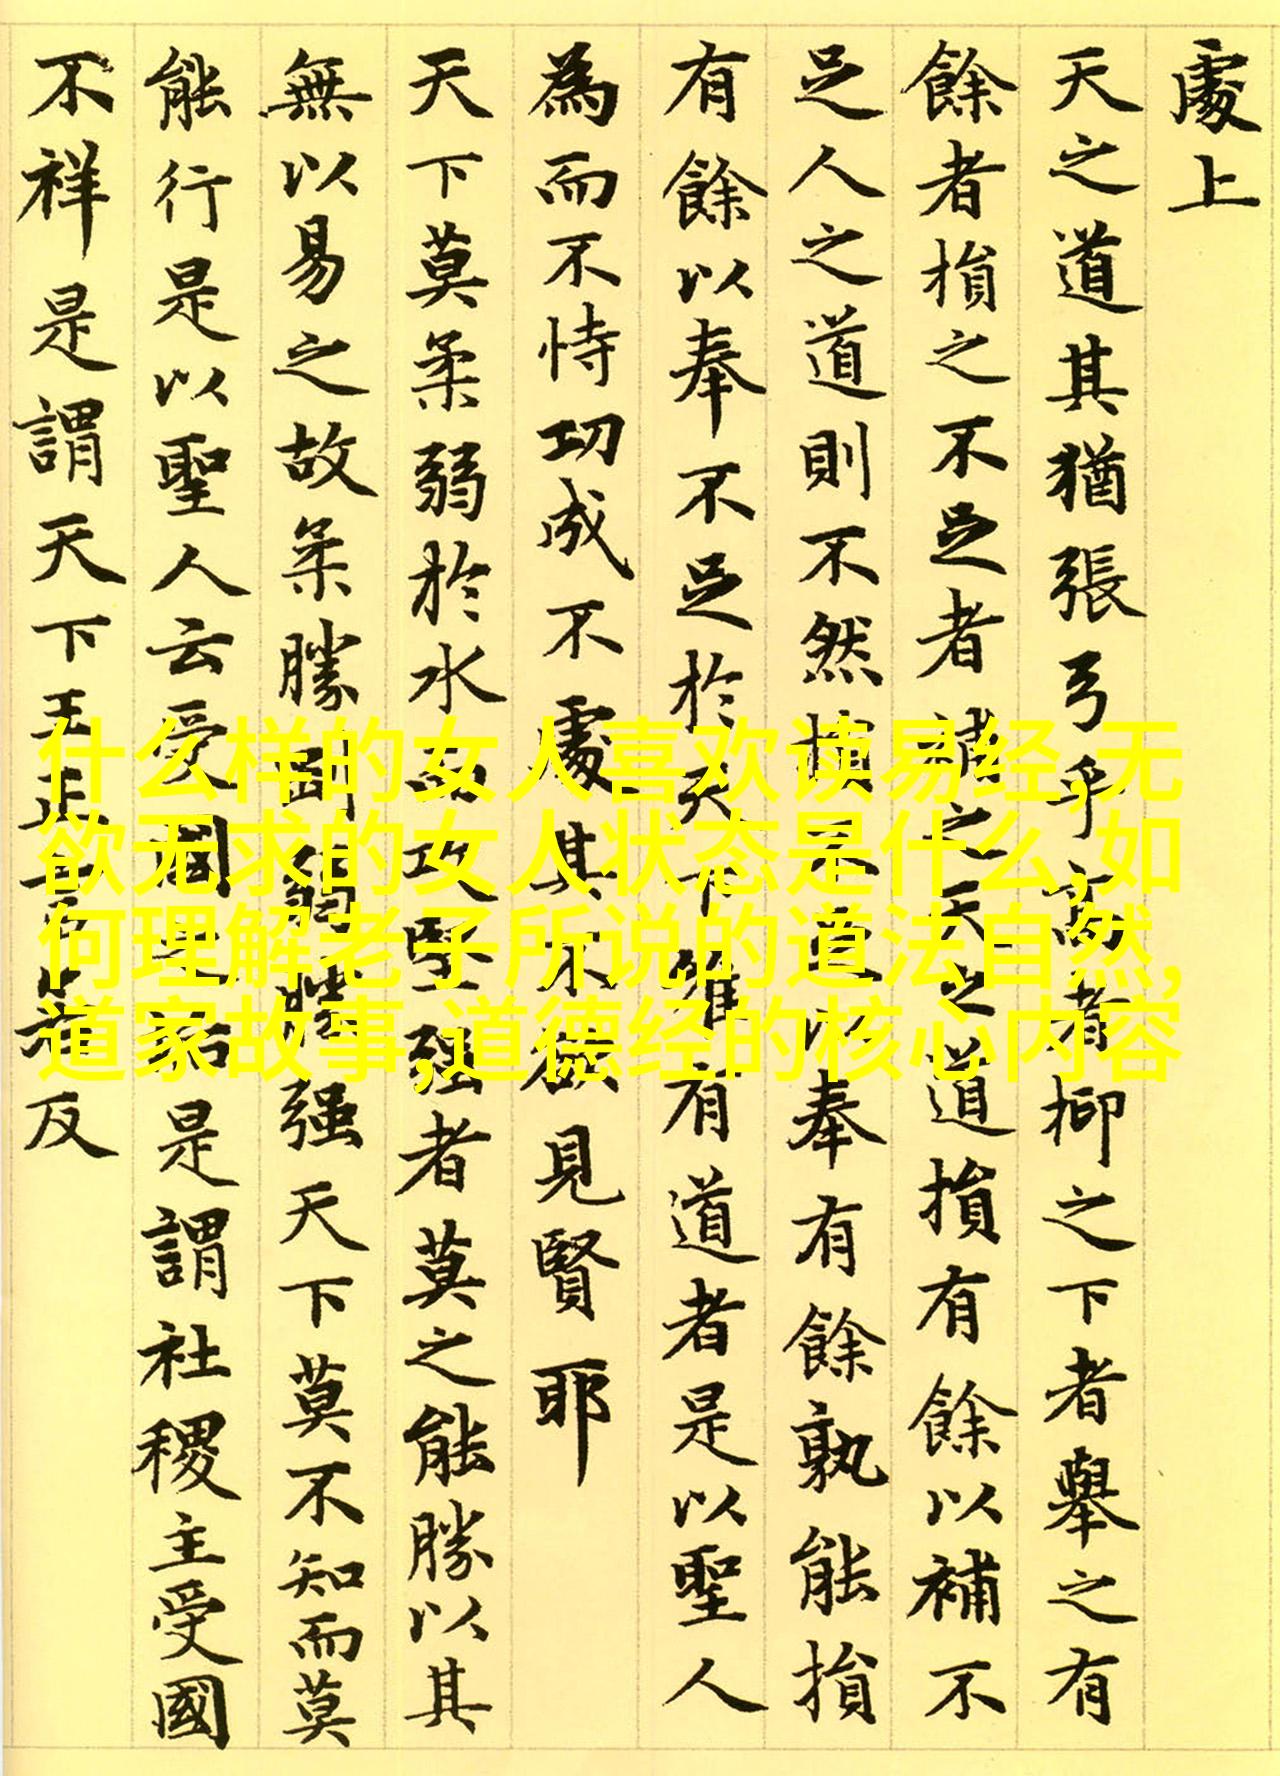 處上
天之道其猶張弓乎高者抑之下者舉之有
餘者損之不足者補之天之道損有餘以補不
足人之道則不然損不足以奉有餘孰能損
有餘以奉不足於天下唯有道者是以聖人
為而不恃功成不處其不欲見賢耶
天下莫柔弱於水而攻堅强者莫之能勝以其
無以易之故柔勝剛弱勝强天下莫不知而莫
能行是以聖人云受國之垢是謂社稷主受國
不祥是謂天下王正言若反
什么样的女人喜欢读易经,无
欲无求的女人状态是什么,如
何理解老子所说的道法自然,
道家故事,道德经的核心内容